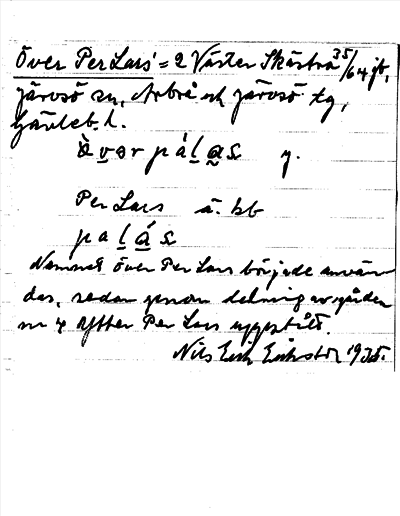 Över Per Lars' = 2 Väster Skästra 35/64 jb,
Järvsö sn, Arbrå och Järvsö tg,
Gävleb. l.
y.
Per Lars ä. bb
Namnet Över Per Lars började använ-
das, sedan genom delning av gården
nr 4 Ytter Per Lars uppstått.
Nils Erik 1935.